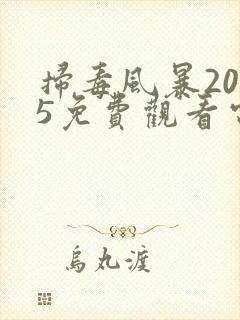 掃毒風暴20
5免費觀看
烏丸渡